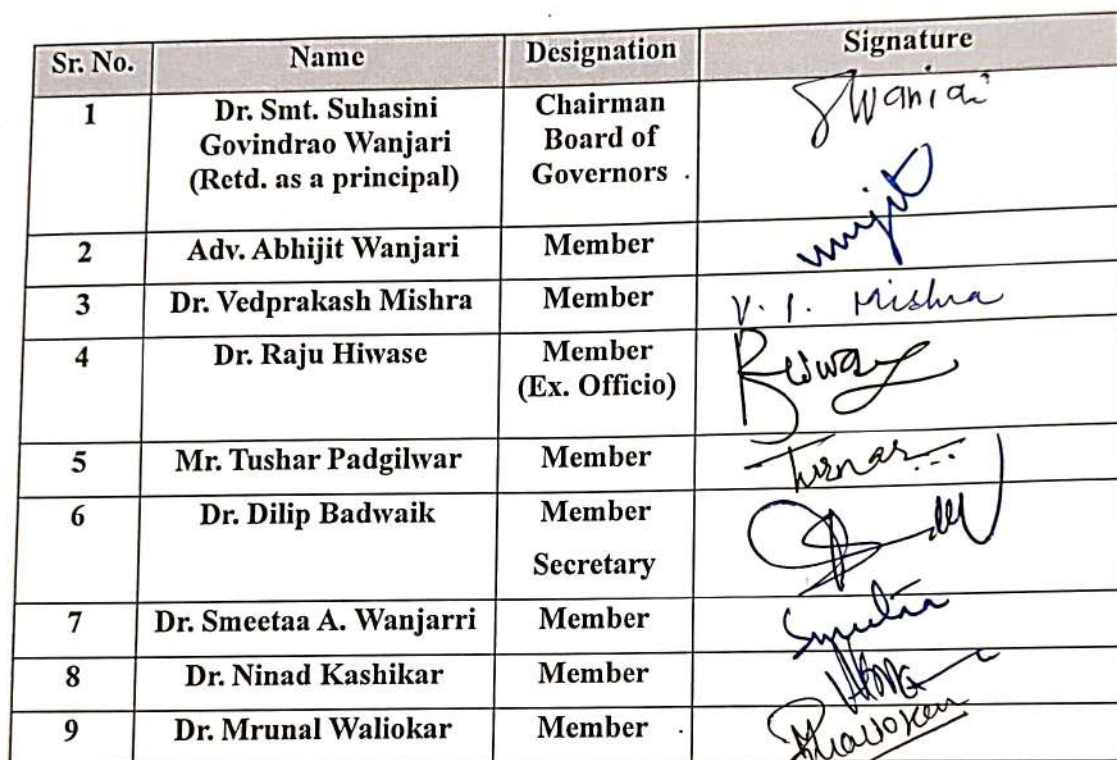 Sr. No. Name Designation Signature
1 Dr. Smt. Suhasini Chairman
Govindrao Wanjari Board of
(Retd. as a principal) Governors
2 Adv. Abhijit Wanjari Member
3 Dr. Vedprakash Mishra Member V. I. Mishra
4 Dr. Raju Hiwase Member
(Ex. Officio)
5 Mr. Tushar Padgilwar Member
6 Dr. Dilip Badwaik Member
Secretary
7 Dr. Smeetaa A. Wanjarri Member
8 Dr. Ninad Kashikar Member
9 Dr. Mrunal Waliokar Member